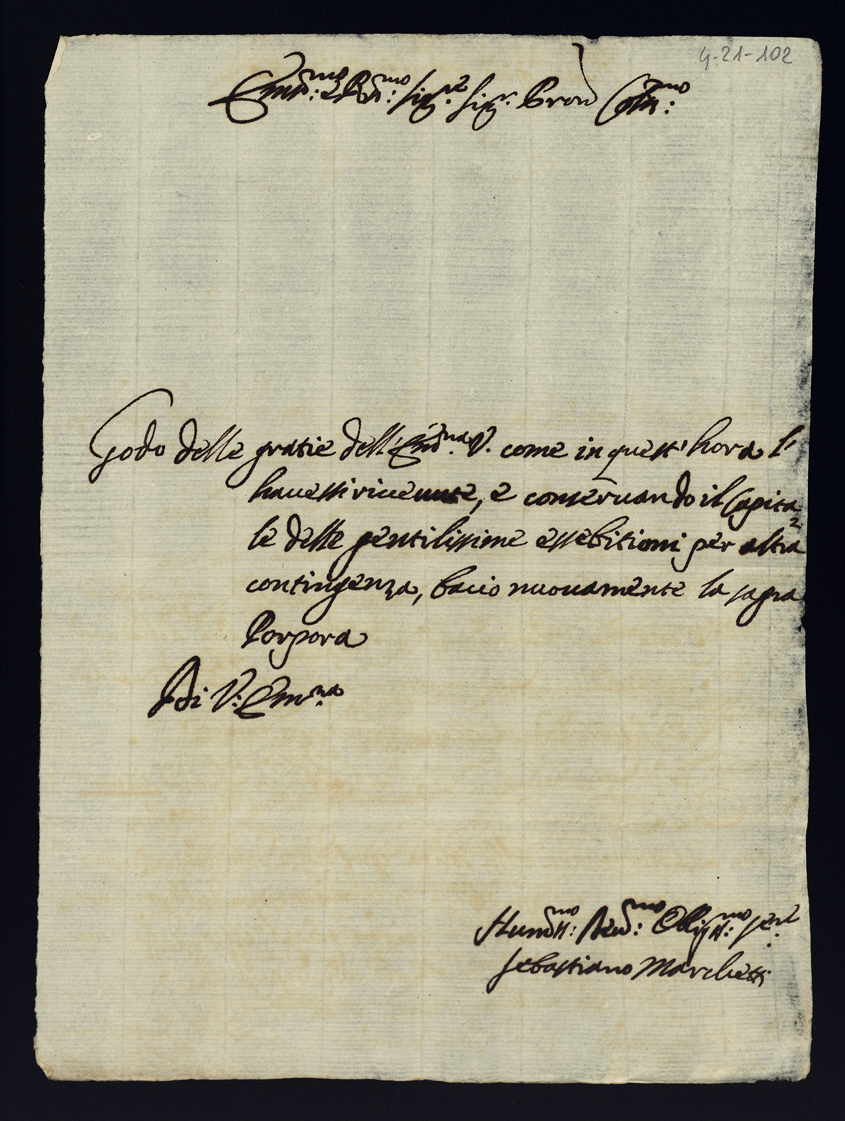 4-21-102
Em.mo e R.mo Sig.re Sig.r Pron Col.mo
Godo delle gratie dell'Em.na V. come in quest'hora l'
havessi riceuute, e conseruando il Capita
le delle gentilissime essebitioni per altra
contingenza, bacio nuouamente la sagra
Porpora
Di V. Em.na
Hum.mo Deu.mo Oblig.mo ser.e
Sebastiano Marchetti